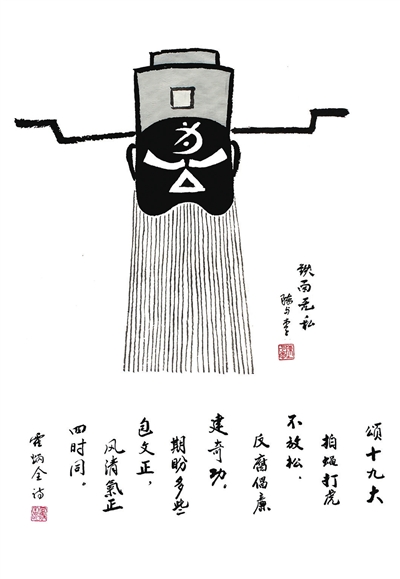 铁面无私
頌十九大
拍蝇打虎
不放松，
反腐倡廉
建奇功。
期盼多些
包文正，
风清氣正
四时同。
炳全诗